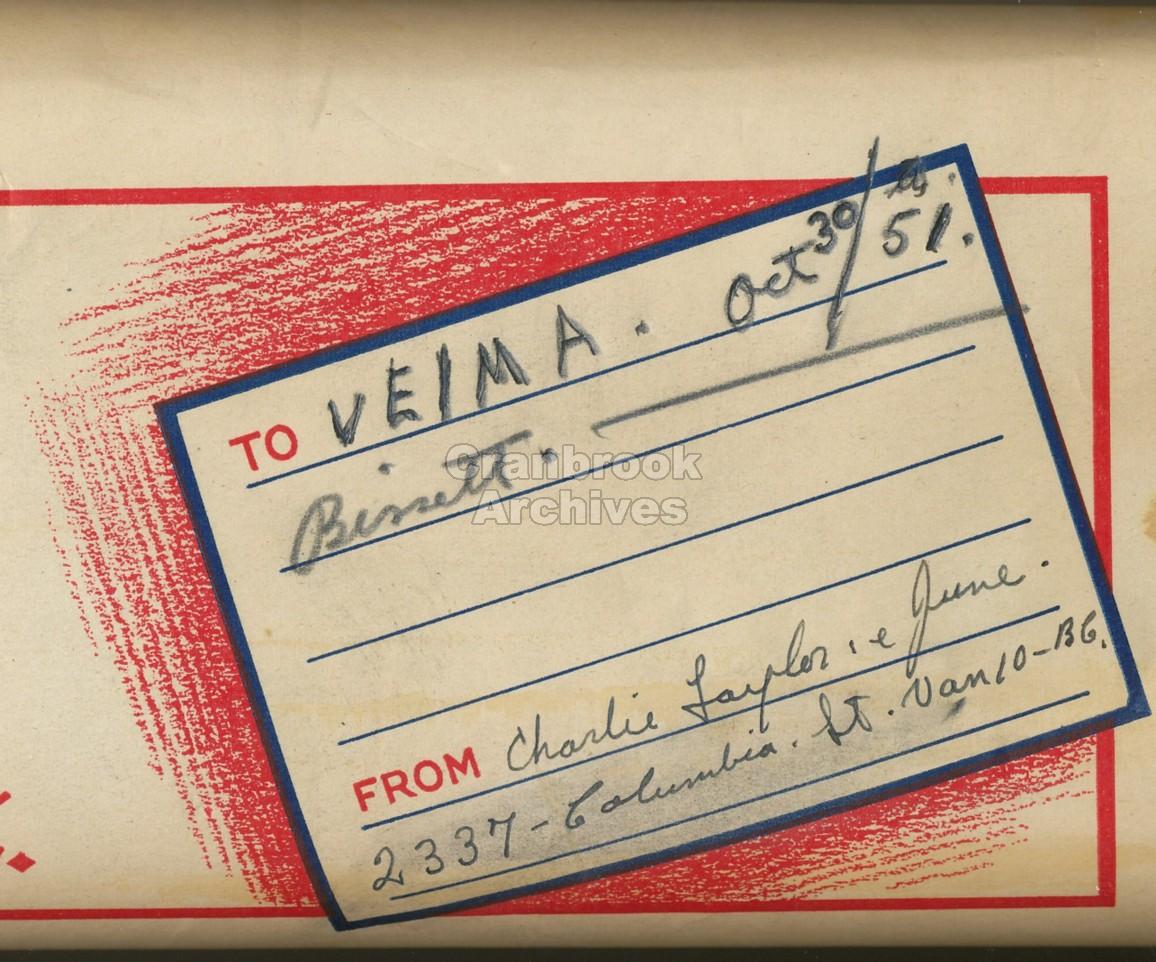 TO VElMA. Oct 30/51.
Bissett.
Cranbrook
Archives
FROM Charlie Taylor. e June.
2337-Columbia. St. Van 10-BC.